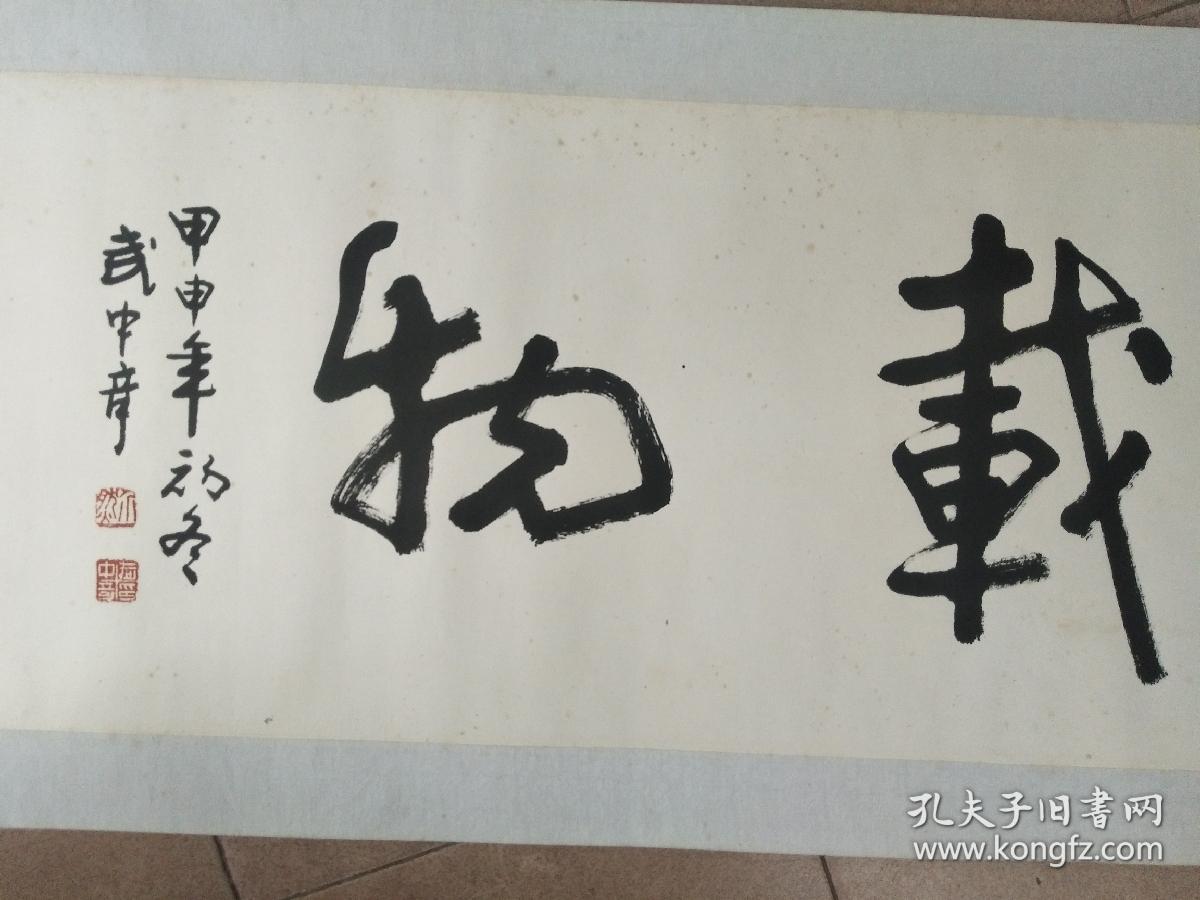 載物
甲申年初冬
武中奇
孔夫子旧书网
www.kongfz.com